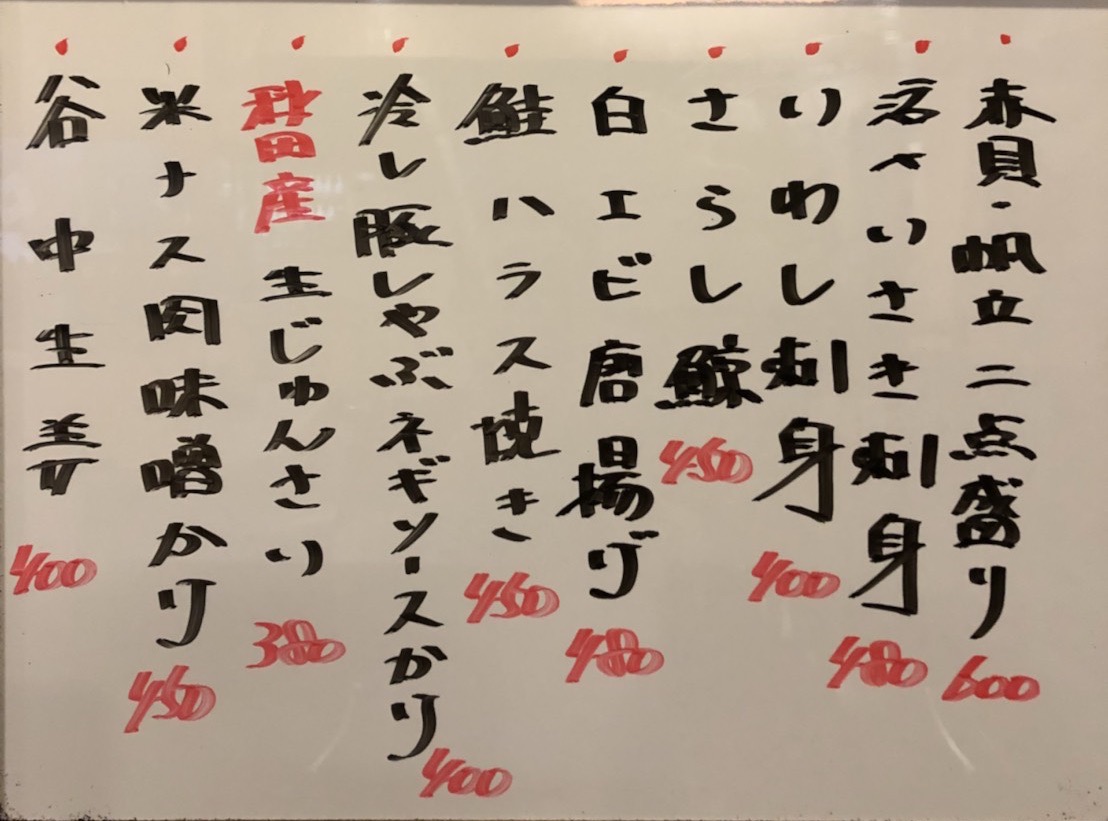 赤貝・帆立二点盛り 600
活〆いさき刺身 480
いわし刺身 400
さらし鯨 450
白エビ唐揚げ 480
鮭ハラス焼き 450
冷し豚しゃぶネギソースかけ 400
秋田産 生じゅんさい 380
米ナス肉味噌かけ 450
谷中生姜 400